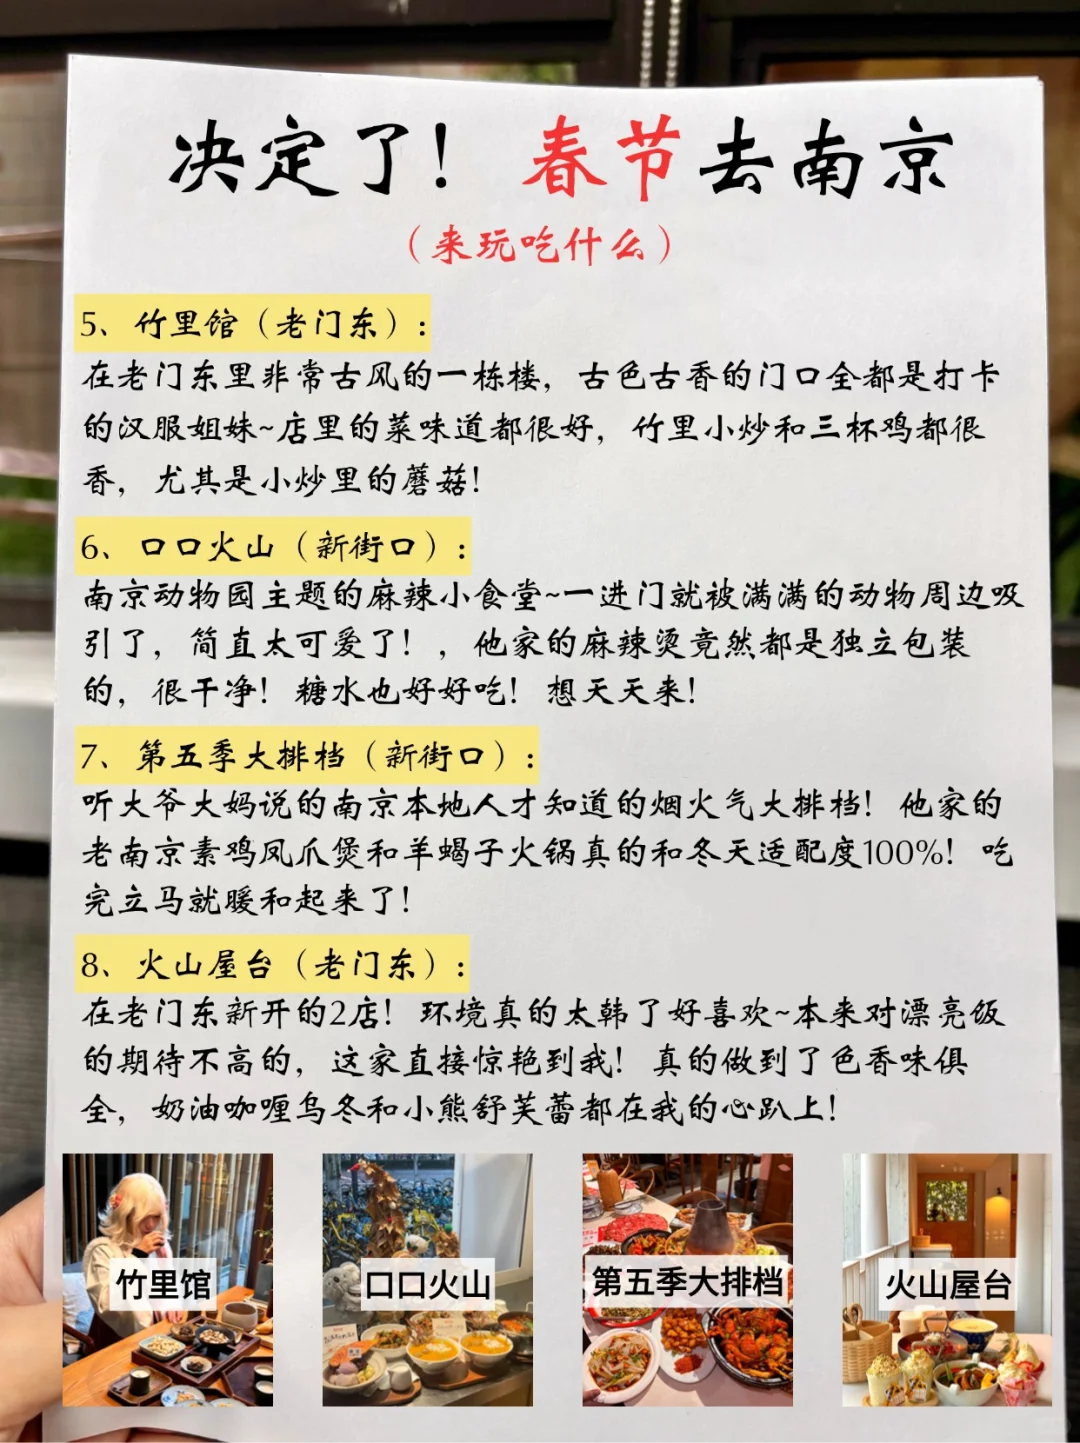 决定了！春节去南京
（来玩吃什么）
5、竹里馆（老门东）：
在老门东里非常古风的一栋楼，古色古香的门口全都是打卡
的汉服姐妹~店里的菜味道都很好，竹里小炒和三杯鸡都很
香，尤其是小炒里的蘑菇！
6、口口火山（新街口）：
南京动物园主题的麻辣小食堂~一进门就被满满的动物周边吸
引了，简直太可爱了！，他家的麻辣烫竟然都是独立包装
的，很干净！糖水也好好吃！想天天来！
7、第五季大排档（新街口）：
听大爷大妈说的南京本地人才知道的烟火气大排档！他家的
老南京素鸡凤爪煲和羊蝎子火锅真的和冬天适配度100%！吃
完立马就暖和起来了！
8、火山屋台（老门东）：
在老门东新开的2店！环境真的太韩了好喜欢~本来对漂亮饭
的期待不高的，这家直接惊艳到我！真的做到了色香味俱
全，奶油咖喱乌冬和小熊舒芙蕾都在我的心趴上！
竹里馆
口口火山
第五季大排档
火山屋台